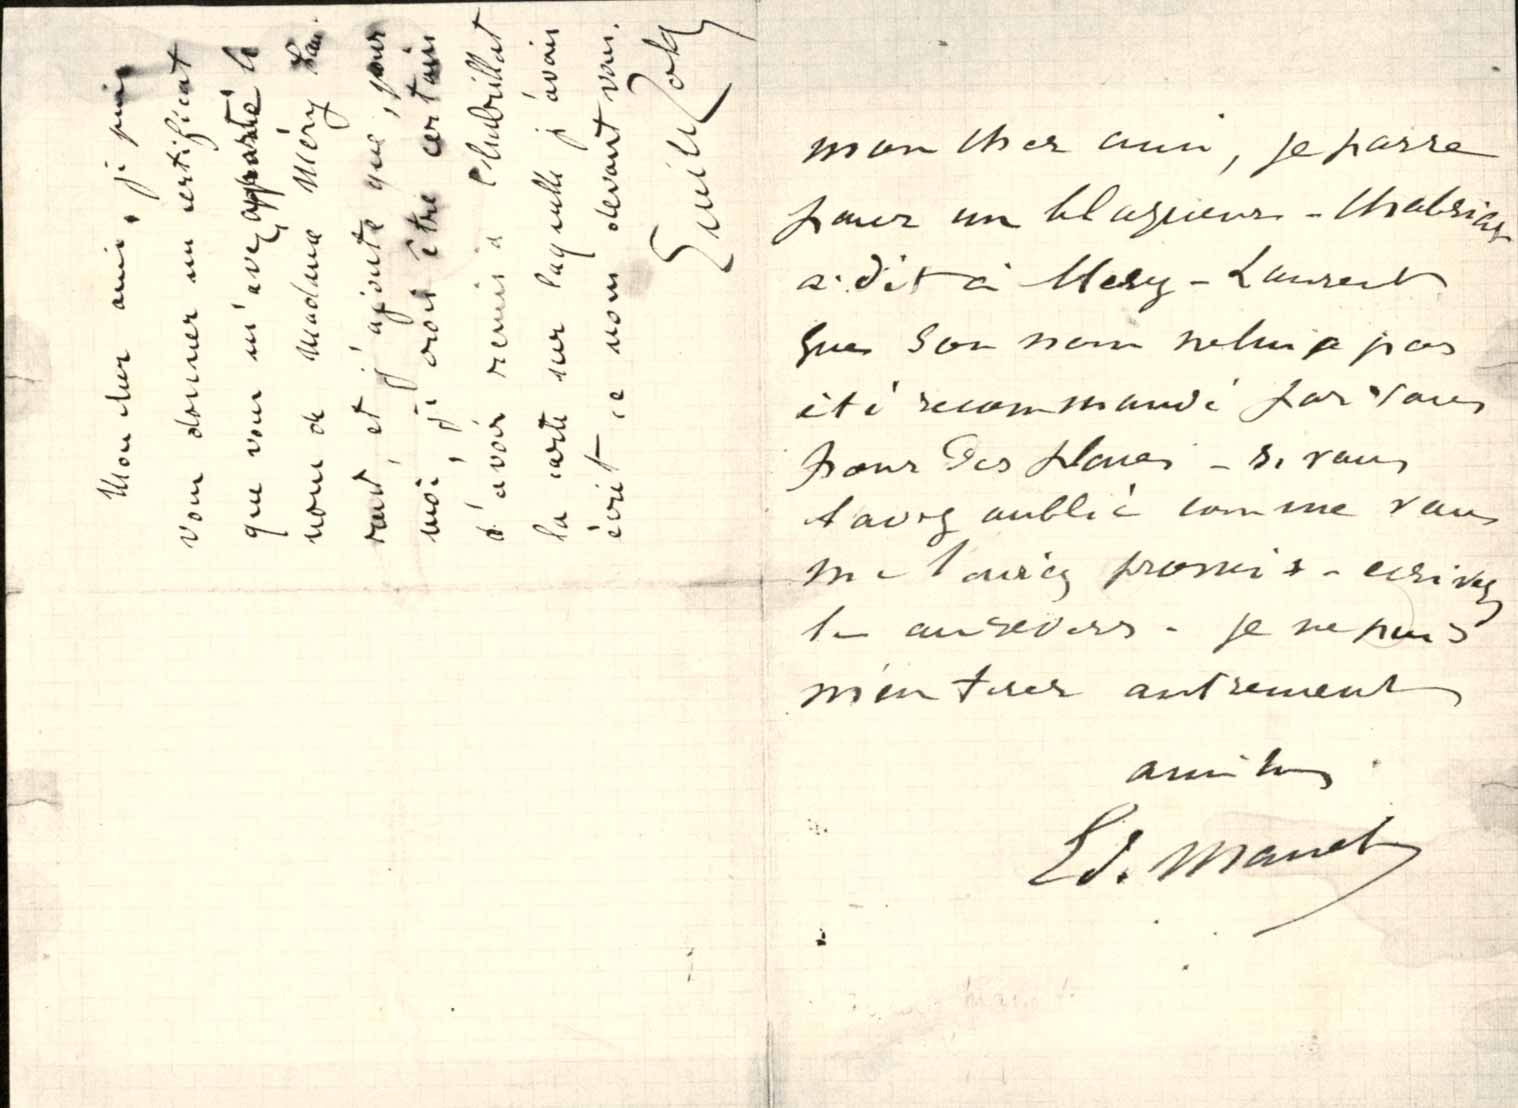 mon cher ami, je passe
pour un blagueur - Chabrillat
a dit à Mery - Laurent
que son nom ne lui a pas
été recommandé par vous
pour des places - si vous
l'avez oublié comme vous
me l'aviez promis - ecrivez
le au revers - je ne puis
m'en tirer autrement
amitiés
Ed. Manet
Mon cher ami, je puis
vous donner un certificat
que vous m'avez apporté le
nom de Madame Méry Lau-
rent, et j'ajoute que, pour
moi, je crois être certain
d'avoir remis à Chabrillat
la carte sur laquelle j'avais
écrit ce nom devant vous.
Emile Zola